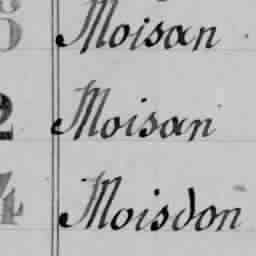 6 Moisan
2 Moisan
4 Moisdon